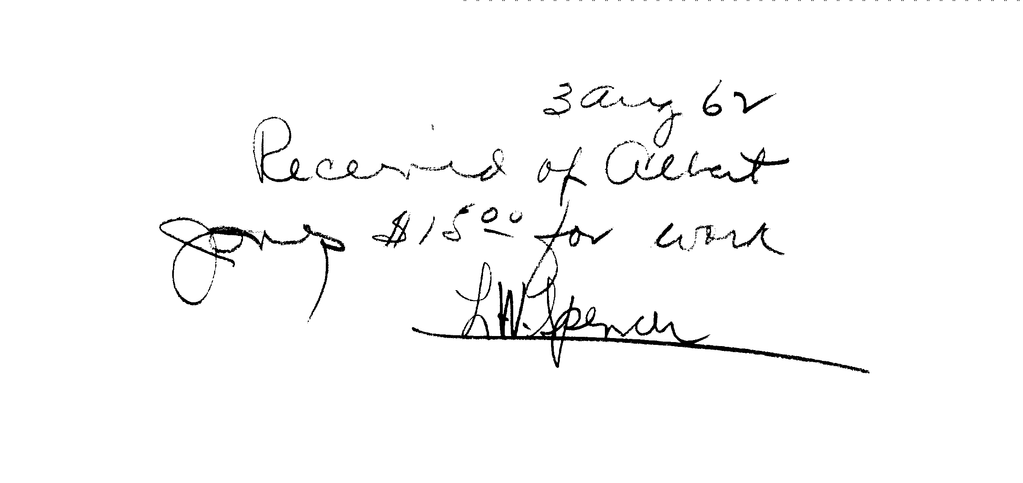 3 Aug 62
Received of Albert
Jones $15.00 for work
L.W. Spencer